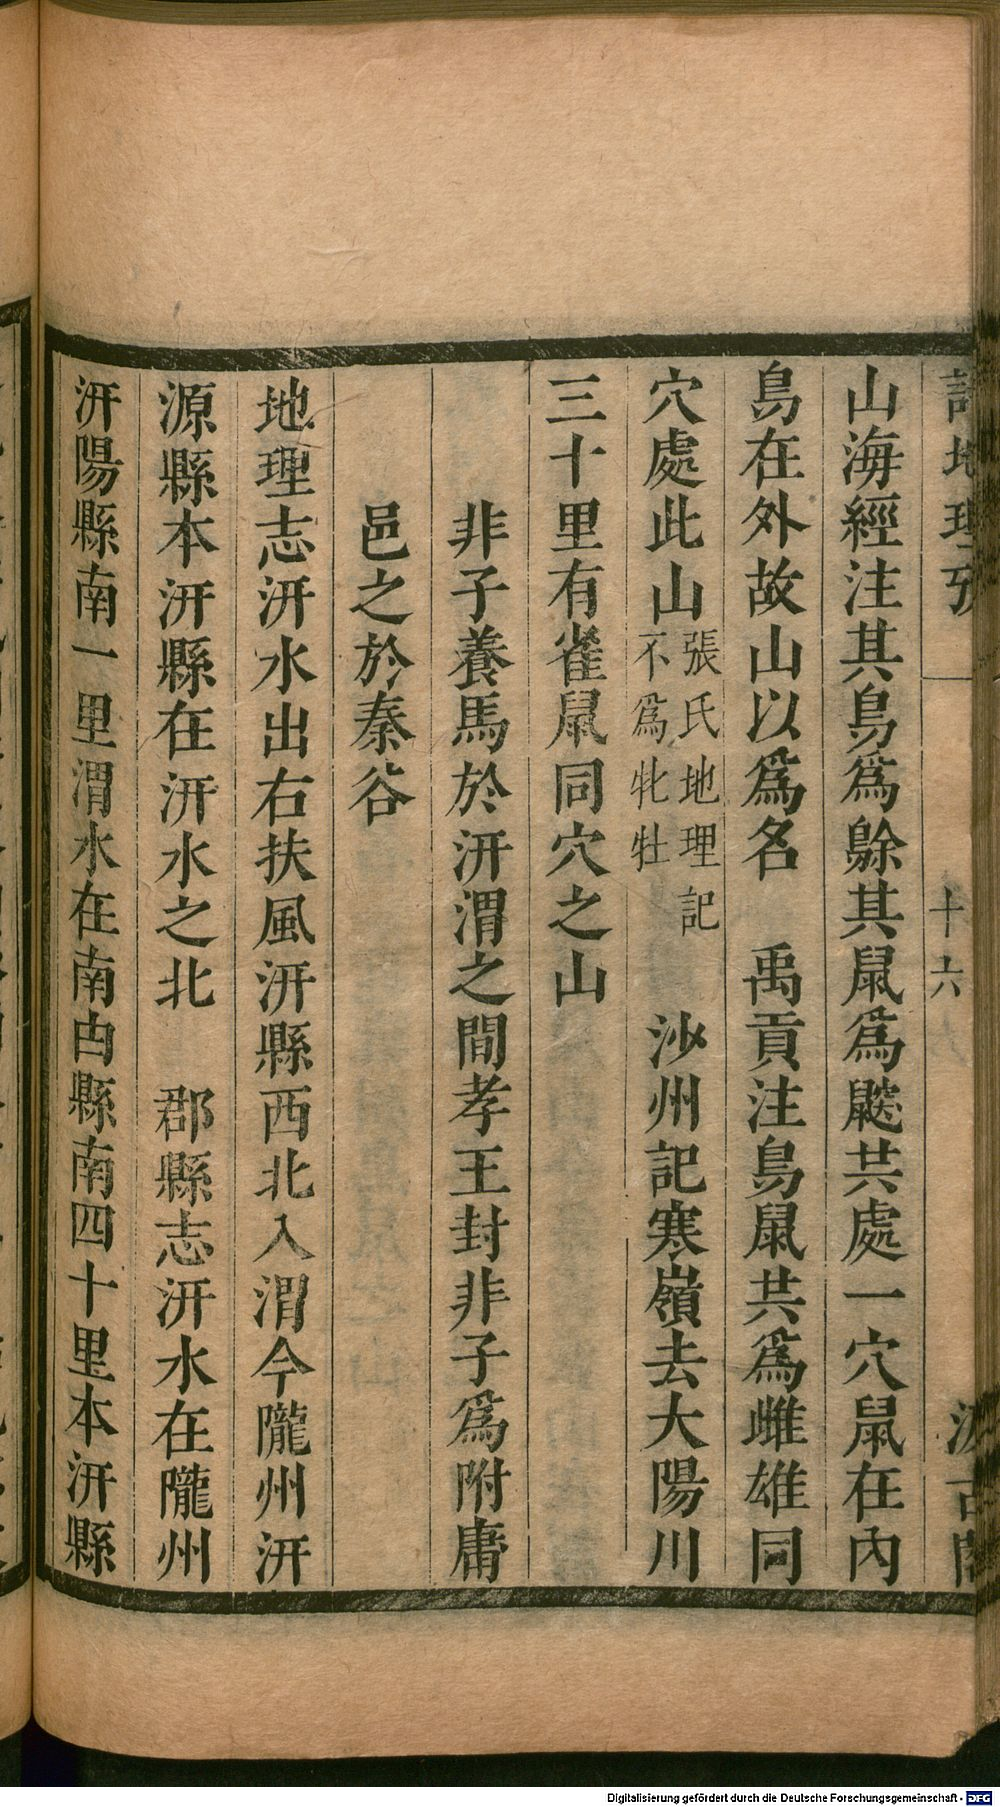 詩地理攷
十六
汲古閣
山海經注其鳥爲鵌其鼠爲鼵共處一穴鼠在內
鳥在外故山以爲名　禹貢注鳥鼠共爲雌雄同
穴處此山張氏地理記不爲牝牡　沙州記寒嶺去大陽川
三十里有雀鼠同穴之山
非子養馬於汧渭之間孝王封非子爲附庸
邑之於秦谷
地理志汧水出右扶風汧縣西北入渭今隴州汧
源縣本汧縣在汧水之北　郡縣志汧水在隴州
汧陽縣南一里渭水在南由縣南四十里本汧縣
Digitalisierung gefördert durch die Deutsche Forschungsgemeinschaft - DFG